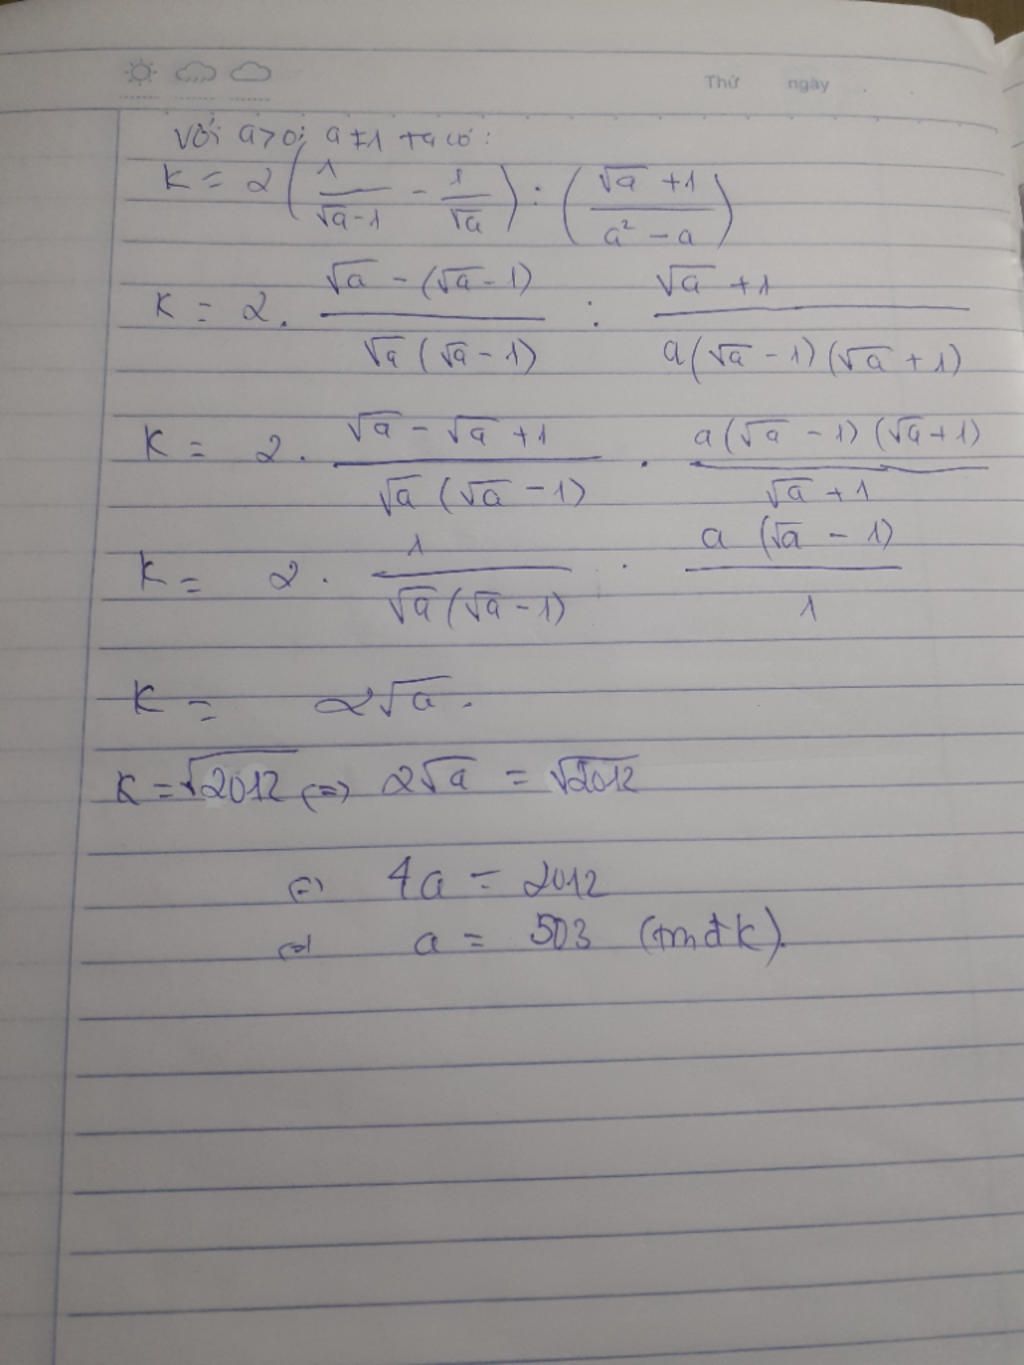 Thứ ngày
Với a>0; a≠1 ta có:
K = 2 (1/(√a-1) - 1/√a) : ((√a +1)/(a² - a))
K = 2. (√a - (√a - 1))/(√a (√a - 1)) : (√a +1)/(a(√a - 1)(√a + 1))
K = 2. (√a - √a +1)/(√a (√a - 1)) . (a(√a - 1)(√a+1))/(√a + 1)
K = 2. 1/(√a(√a - 1)) . (a (√a - 1))/1
K = 2√a.
K = √2012 (=) 2√a = √2012
(=) 4a = 2012
(=) a = 503 (tmđk).